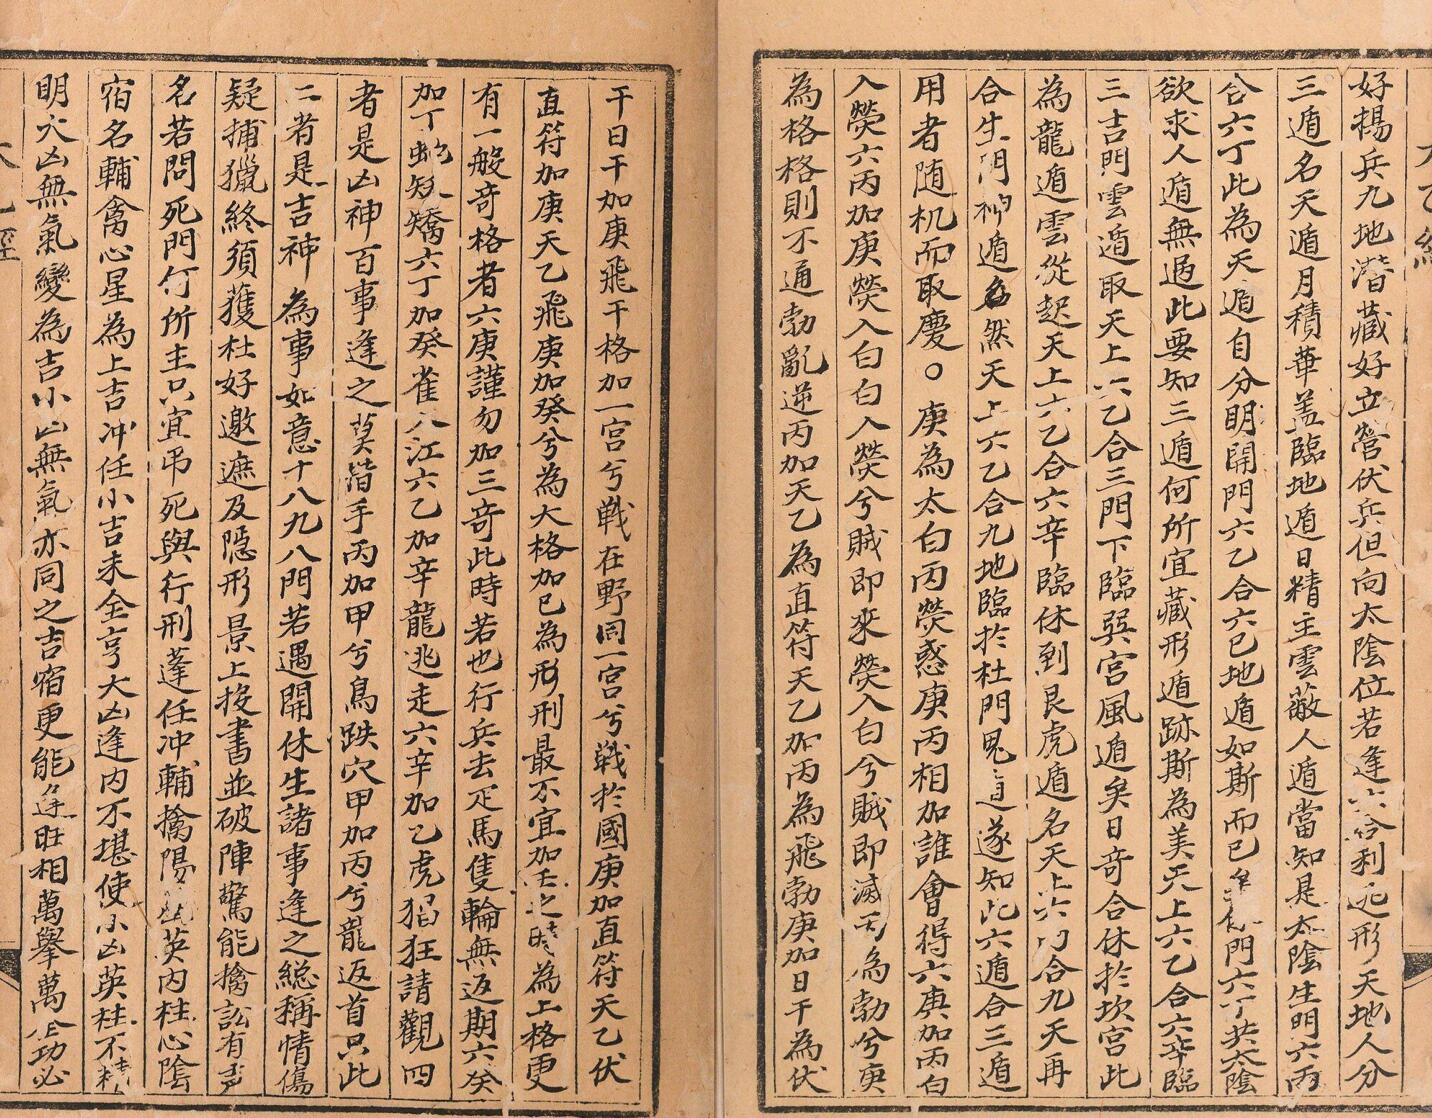 好楊兵九地潛藏好立營伏兵但向太陰位若逢六合利逃形天地人分
三遁名天遁月積華盖臨地遁日精主雲蔽人遁當知是太陰生門六丙
合六丁此為天遁自分明開門六乙合六巳地遁如斯而巳矣休門六丁共太陰
欲求人遁無過此要知三遁何所宜藏形遁跡斯為美天上六乙合六辛臨
三吉門雲遁取天上六乙合三門下臨巽宮風遁矣日奇合休於坎宮此
為龍遁雲從起天上六乙合六辛臨休到艮虎遁名天上六丁合九天再
合生門神遁名然天上六乙合九地臨於杜門鬼遁遂知此六遁合三遁
用者随机而取慶○庚為太白丙熒惑庚丙相加誰會得六庚加丙白
入熒六丙加庚熒入白白入熒兮賊即來熒入白兮賊即滅丙為勃兮庚
為格格則不通勃亂逆丙加天乙為直符天乙加丙為飛勃庚加日干為伏
干日干加庚飛干格加一宮兮戰在野同一宮兮戰於國庚加直符天乙伏
直符加庚天乙飛庚加癸兮為大格加巳為形刑最不宜加壬之時為上格更
有一般奇格者六庚謹勿加三奇此時若也行兵去疋馬隻輪無返期六癸
加丁蛇矨矯六丁加癸雀入江六乙加辛龍逃走六辛加乙虎猖狂請觀四
者是凶神百事逢之莫措手丙加甲兮鳥跌穴甲加丙兮龍返首只此
二者是吉神為事如意十八九八門若遇開休生諸事逢之総稱情傷
疑捕獵終須獲杜好邀遮及隠形景上投書並破陣驚能擒訟有声
名若問死門何所主只宜吊死與行刑蓬任冲輔擒陽星英內柱心陰
宿名輔禽心星為上吉冲任小吉未全亨大凶逢內不堪使小凶英柱不精
明大凶無氣變為吉小凶無氣亦同之吉宿更能逢旺相萬舉萬全功必